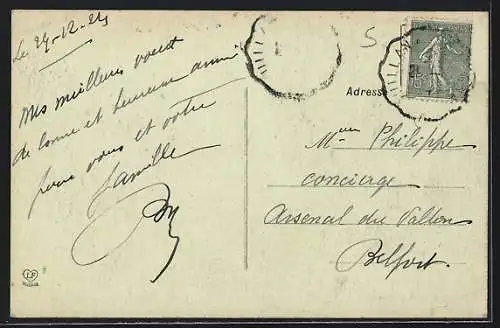 Le 29-12-24
Mes meilleurs voeux
de bonne et heureuse année
pour vous et votre
famille
Adresse
Mme Philippe
concierge
Arsenal du Vallon
Belfort.